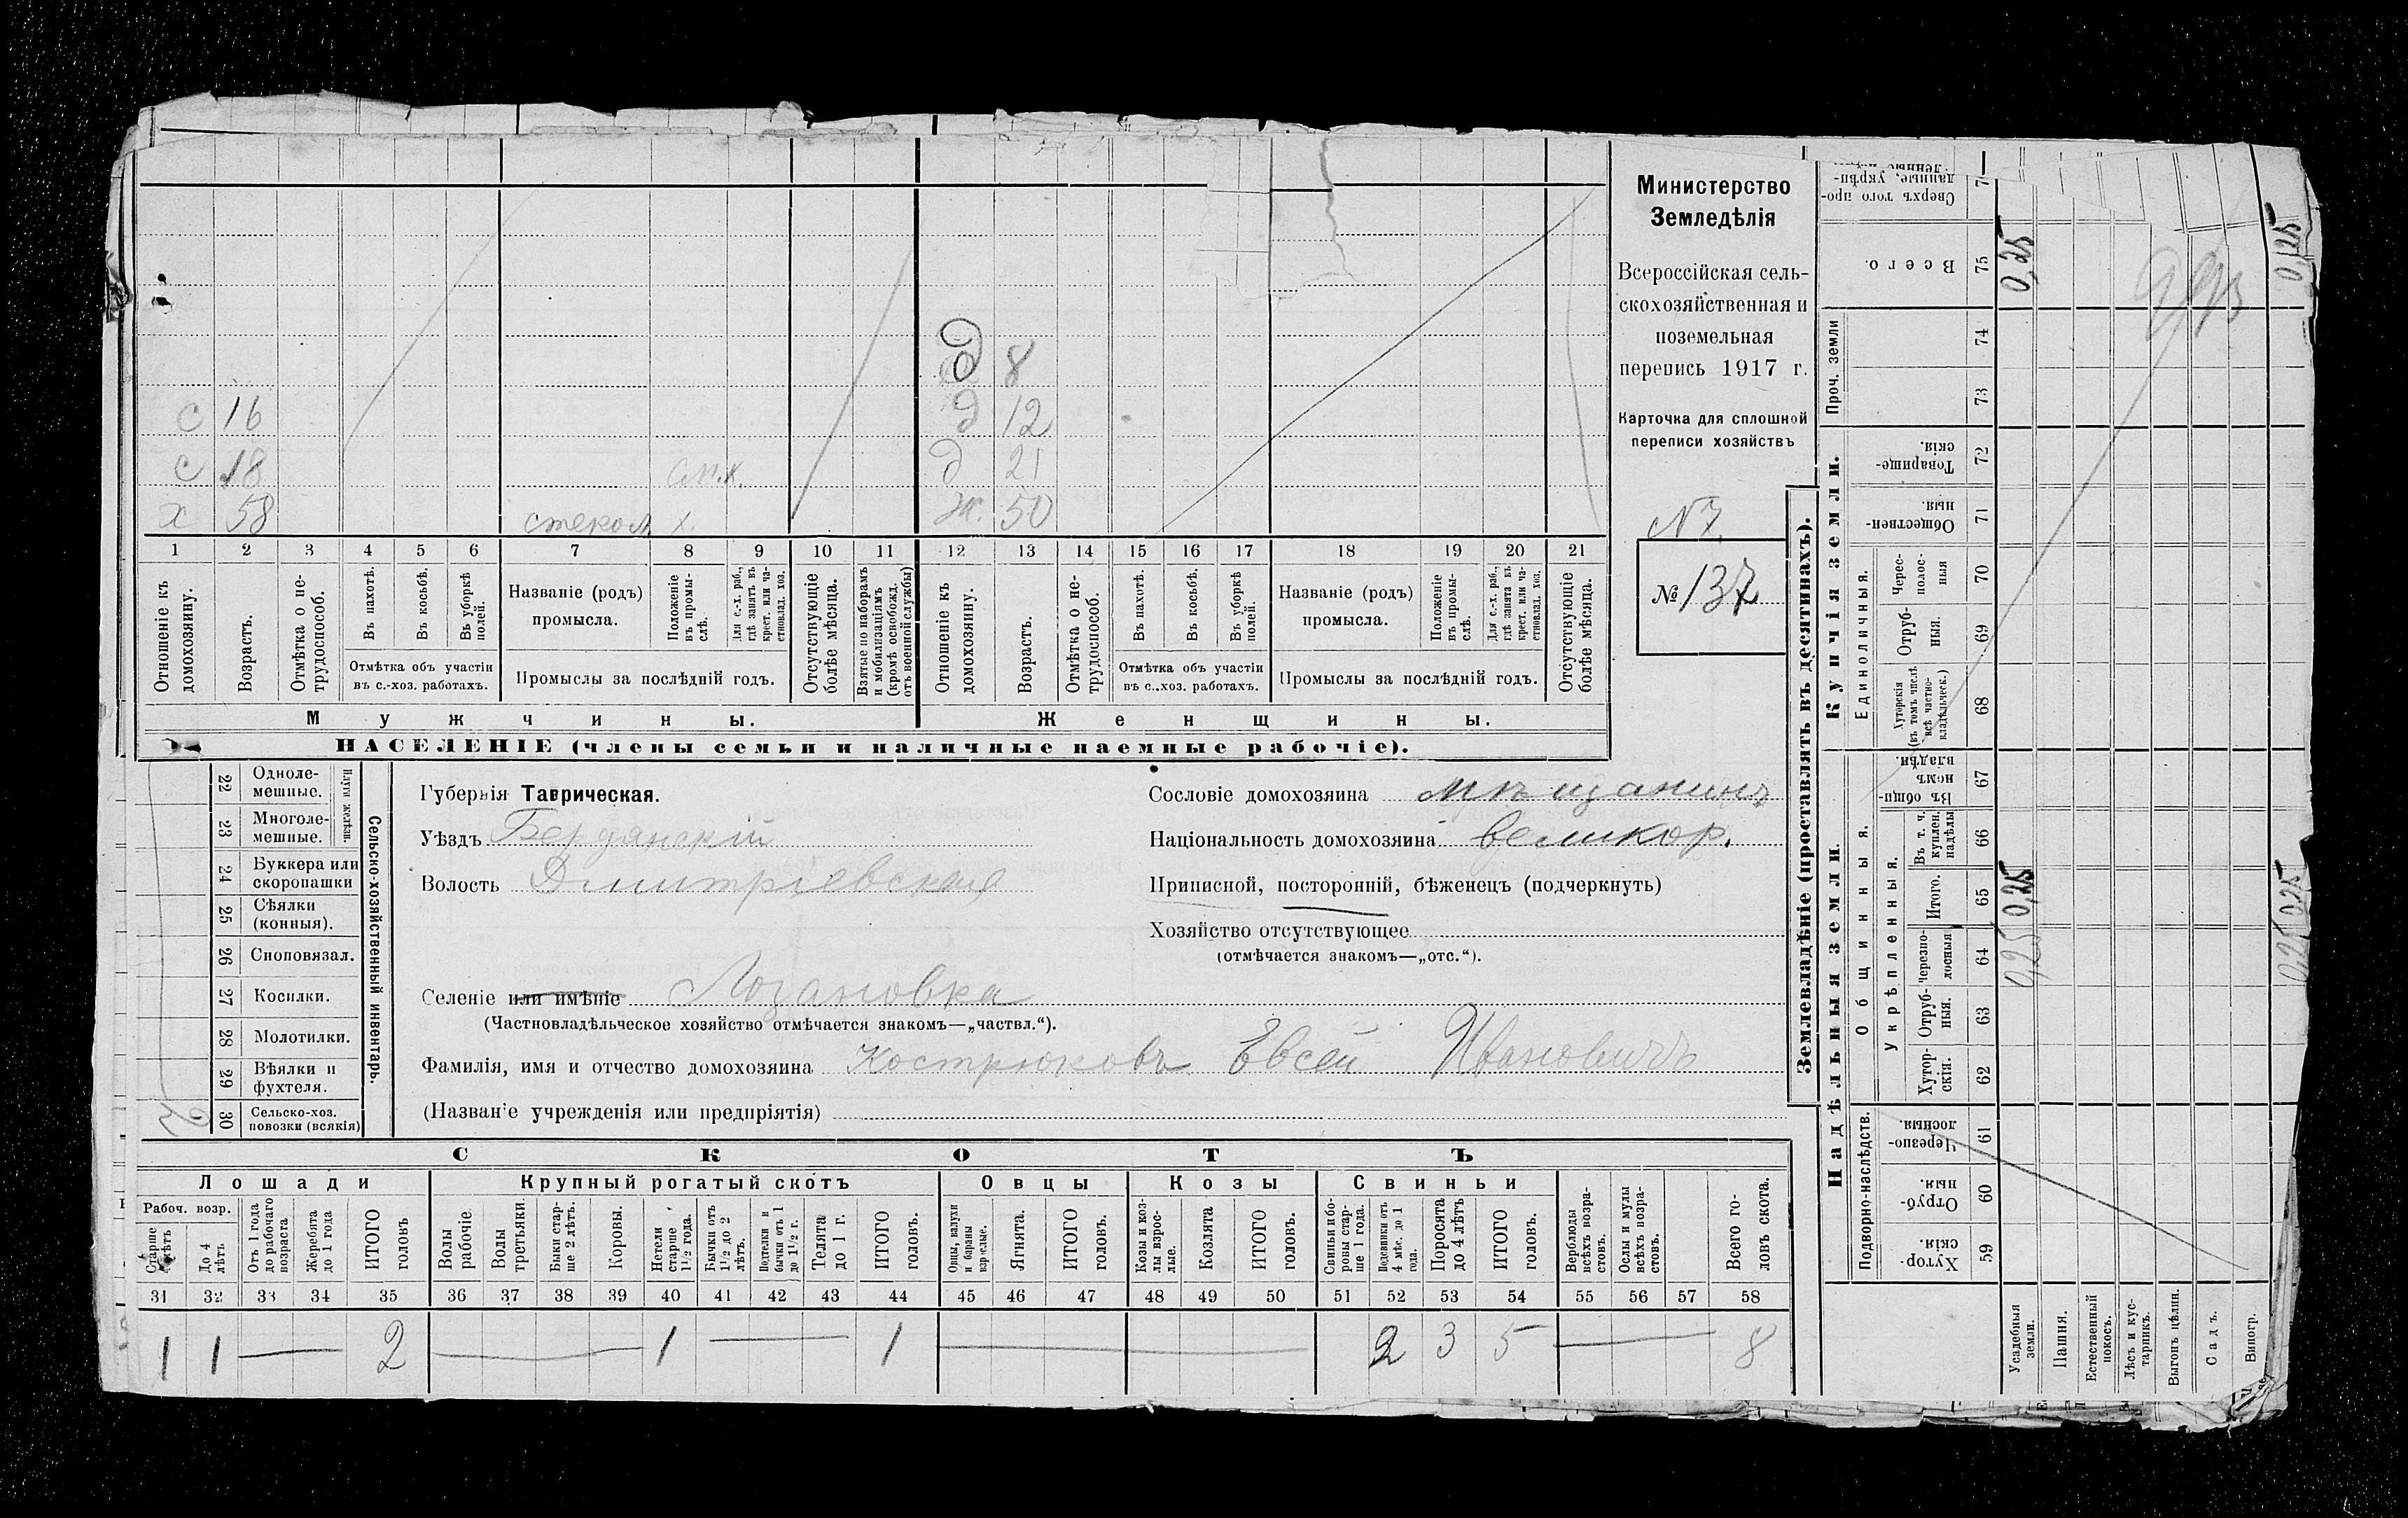 с 16
с 18 сп.х.
х 58 стекол. х.
д 8
д 12
д 21
ж. 50
1 2 3 4 5 6 7 8 9 10 11 12 13 14 15 16 17 18 19 20 21
Отношеніе къ домохозяину.
Возрастъ.
Отмѣтка о не-
трудоспособ.
Въ пахотѣ.
Въ косьбѣ.
Въ уборкѣ
полей.
Отмѣтка объ участіи
въ с.-хоз. работахъ.
Названіе (родъ)
промысла.
Положеніе
въ промы-
слѣ.
Для с.-х. раб.,
гдѣ занятъ въ
крест. или ча-
стновлад. хоз.
Промыслы за послѣдній годъ.
Отсутствующіе
болѣе мѣсяца.
Взятые по наборамъ
и мобилизаціямъ
(кромѣ освобожд.
отъ военной службы)
Отношеніе къ
домохозяину.
Возрастъ.
Отмѣтка о не-
трудоспособ.
Въ пахотѣ.
Въ косьбѣ.
Въ уборкѣ
полей.
Отмѣтка объ участіи
въ с..хоз. работахъ.
Названіе (родъ)
промысла.
Положеніе
въ промы-
слѣ.
Для с.-х. раб.,
гдѣ занята въ
крест. или ча-
стновлад. хоз.
Промыслы за послѣдній годъ.
Отсутствующіе
болѣе мѣсяца.
Мужчины.
Женщины.
НАСЕЛЕНІЕ (члены семьи и наличные наемные рабочіе).
Министерство
Земледѣлія
Всероссійская сель-
скохозяйственная и
поземельная
перепись 1917 г.
Карточка для сплошной
переписи хозяйствъ
N 7.
№ 137
22 Одноле-
мешные.
23 Многоле-
мешные.
Плуги желѣзн.
24 Буккера или
скоропашки
25 Сѣялки
(конныя).
26 Сноповязал.
27 Косилки.
28 Молотилки.
29 Вѣялки и
фухтеля.
30 Сельско-хоз.
повозки (всякія)
Сельско-хозяйственный инвентарь.
Губернія Таврическая.
Уѣздъ Бердянскій
Волость Дмитріевская
Селеніе или имѣніе Лозановка
(Частновладѣльческое хозяйство отмѣчается знакомъ—„частвл.“).
Фамилія, имя и отчество домохозяина Кострюковъ Евсей Ивановичъ
(Названіе учрежденія или предпріятія)
Сословіе домохозяина мѣщанинъ
Національность домохозяина великор.
Приписной, посторонній, бѣженецъ (подчеркнуть)
Хозяйство отсутствующее
(отмѣчается знакомъ—„отс.“).
СКОТЪ
Лошади
Крупный рогатый скотъ
Овцы
Козы
Свиньи
Рабоч. возр.
Старше
До 4
лѣтъ
Отъ 1 года
до рабочаго
возраста
Жеребята
до 1 года
ИТОГО
головъ
Волы
рабочіе
Волы
третьяки
Быки стар-
ше 2 лѣтъ.
Коровы.
Нетели
старше
1½ года.
Бычки отъ
1½ до 2
лѣтъ.
Подтелки и
бычки отъ 1
до 1½ г.
Телята
до 1 г.
ИТОГО
головъ.
Овцы, валухи
и бараны
взрослые.
Ягнята.
ИТОГО
головъ.
Козы и коз-
лы взрос-
лые.
Козлята
ИТОГО
головъ.
Свиньи и бо-
ровы стар-
ше 1 года.
Подсвинки отъ
4 мѣс. до 1
года.
Поросята
до 4 лѣтъ
ИТОГО
головъ.
Верблюды
всѣхъ возра-
стовъ.
Ослы и мулы
всѣхъ возра-
стовъ.
Всего го-
ловъ скота.
31 32 33 34 35 36 37 38 39 40 41 42 43 44 45 46 47 48 49 50 51 52 53 54 55 56 57 58
1 1 2 1 1 2 3 5 8
Землевладѣніе (проставлять въ десятинахъ).
Купчія земли.
Надѣльныя земли.
Сверхъ того про-
данные, укрѣп-
Всего. 75
Проч. земли 74
73
Товарище-
скія. 72
Обществен-
ныя. 71
Единоличныя.
Черес-
полос-
ныя 70
Отруб-
ныя. 69
Хуторскія
(въ томъ числѣ
всѣ частно-
владѣльческ.) 68
Общинныя.
Въ общи-
номъ
владѣн. 67
Укрѣпленныя.
Въ т. ч.
куплен.
надѣлы 66
Итого. 65
Черезпо-
лосныя 64
Отруб-
ныя. 63
Хутор-
скія. 62
Подворно-наслѣдств.
Черезпо-
лосныя. 61
Отруб-
ныя. 60
Хутор-
скія. 59
Усадебныя
земли.
Пашня.
Естественный
покосъ.
Лѣсъ и кус-
тарникъ.
Выгонъ цѣлин.
Садъ.
Виногр.
0,25
0,25 0,25
0,25
0,25 0,25